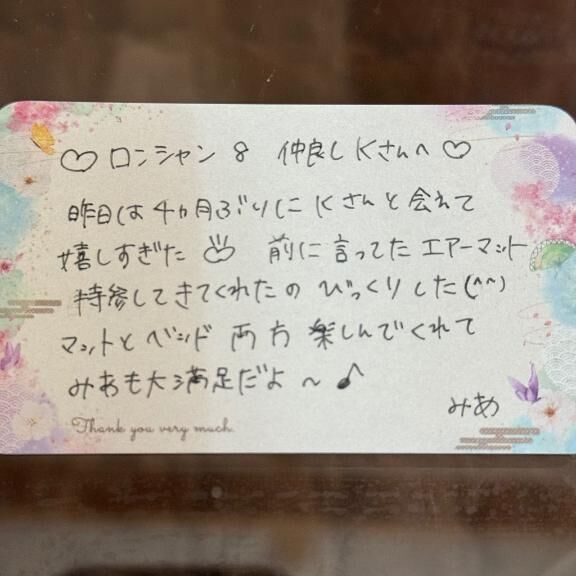 ♡ ロンシャン 8 仲良しKさんへ ♡
昨日は4ヵ月ぶりにKさんと会えて
嬉しすぎた 前に言ってたエアーマット
持参してきてくれたのびっくりした(^^)
マットとベッド両方楽しんでくれて
みあも大満足だよ〜♪
みあ
Thank you very much.